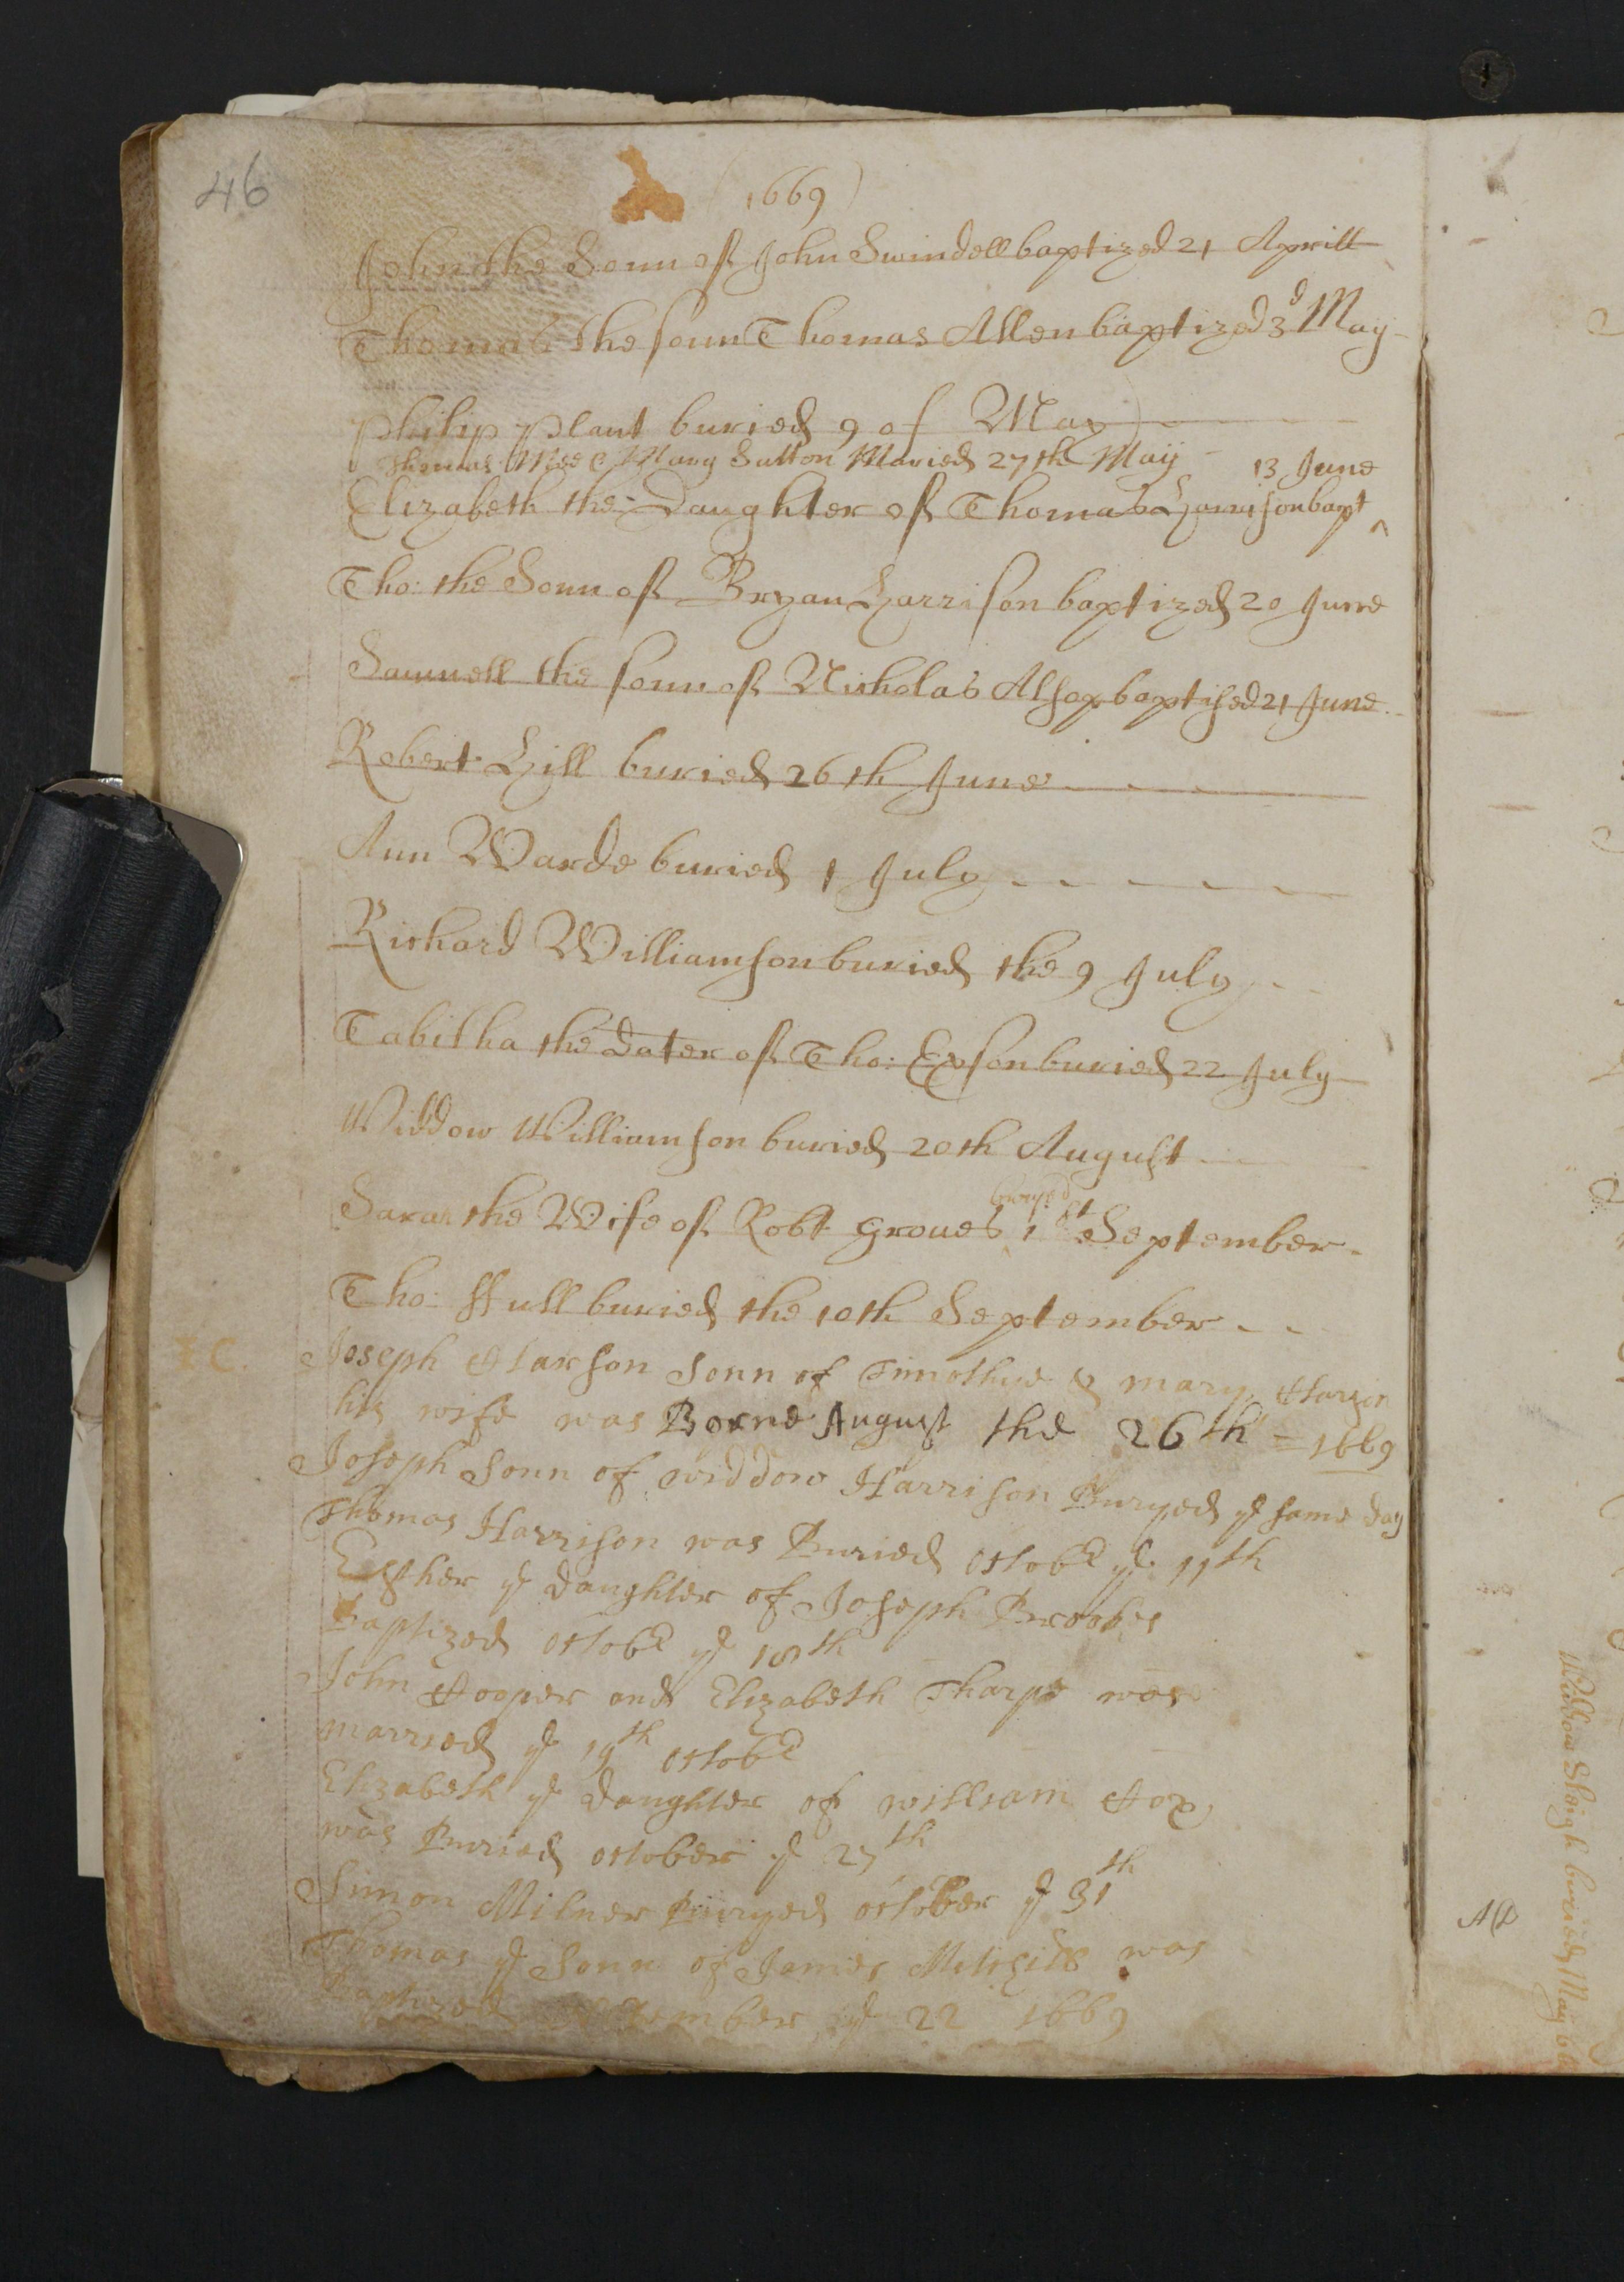 46
(1669)
John the Sonn of John Swindell baptized 21 Aprill
Thomas the sonn Thomas Allen baptized 3d May
Philip Plant buried 9 of May
Thomas Mee & Mary Sutton Maried 27th May
13 June
Elizabeth the Daughter of Thomas Harrison bapt ^
Tho: the Sonn of Bryan Harrison baptized 20 June
Samuell the sonn of Nicholas Alsop baptised 21 June
Robert Hill buried 26th June
Ann Warde buried 1 July
Richard Williamson buried the 9 July
Tabitha the dater of Tho: Exson buried 22 July
Widdow Williamson buried 20th August
buryed
Sarar the Wife of Robt Groues ^ 1st September
Tho: ffull buried the 10th September
C.
Joseph Harson Sonn of Timothye & mary Harson
his wife was Borne August the 26th = 1669
Joseph Sonn of widdow Harrison Buryed ye same day
Thomas Harrison was Buried Octobr ye 11th
Esther ye Daughter of Joseph Brookes
Baptized Octobr ye 18th
John Hooper and Elizabeth Tharpe was
married ye 19th Octobr
Elizabeth ye Daughter of william
was Buried October ye 27th
Simon Milner Buryed October ye 31th
Thomas ye Sonn of James was
Baptized ye 22 1669
Widdow Sleigh buried May 6th